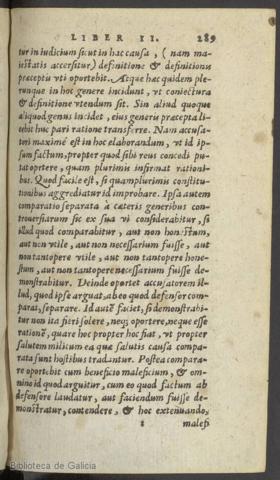 LIBER II. 289
tur in iudicium sicut in hac causa, (nam ma-
iestatis accersitur) definitione & definitionis
præceptis vti oportebit. Atque hæc quidem ple-
runque in hoc genere incidunt, vt coniectura
& definitione vtendum sit. Sin aliud quoque
aliquod genus incidet, eius generis præcepta li-
cebit huc pari ratione transferre. Nam accusa-
tori maximè est in hoc elaborandum, vt id ip-
sum factum, propter quod sibi reus concedi pu-
tat oportere, quam plurimis infirmet rationi-
bus. Quod facile est, si quamplurimis constitu-
tionibus aggrediatur id improbare. Ipsa autem
comparatio separata à cæteris generibus con-
trouersiarum sic ex sua vi considerabitur, si
illud quod comparabitur, aut non honestum,
aut non vtile, aut non necessarium fuisse, aut
non tantopere vtile, aut non tantopere hone-
stum, aut non tantopere necessarium fuisse de-
monstrabitur. Deinde oportet accusatorem il-
lud, quod ipse arguat, ab eo quod defensor com-
parat, separare. Id autē faciet, si demonstrabi-
tur non ita fieri solere, neq; oportere, neque esse
rationē, quare hoc propter hoc fiat, vt propter
salutem militum ea quæ salutis causa compa-
rata sunt hostibus tradantur. Postea compara-
re oportebit cum beneficio maleficium, & om-
nino id quod arguitur, cum eo quod factum ab
defensore laudatur, aut faciendum fuisse de-
monstratur, contendere, & hoc extenuando,
malefi
Biblioteca de Galicia